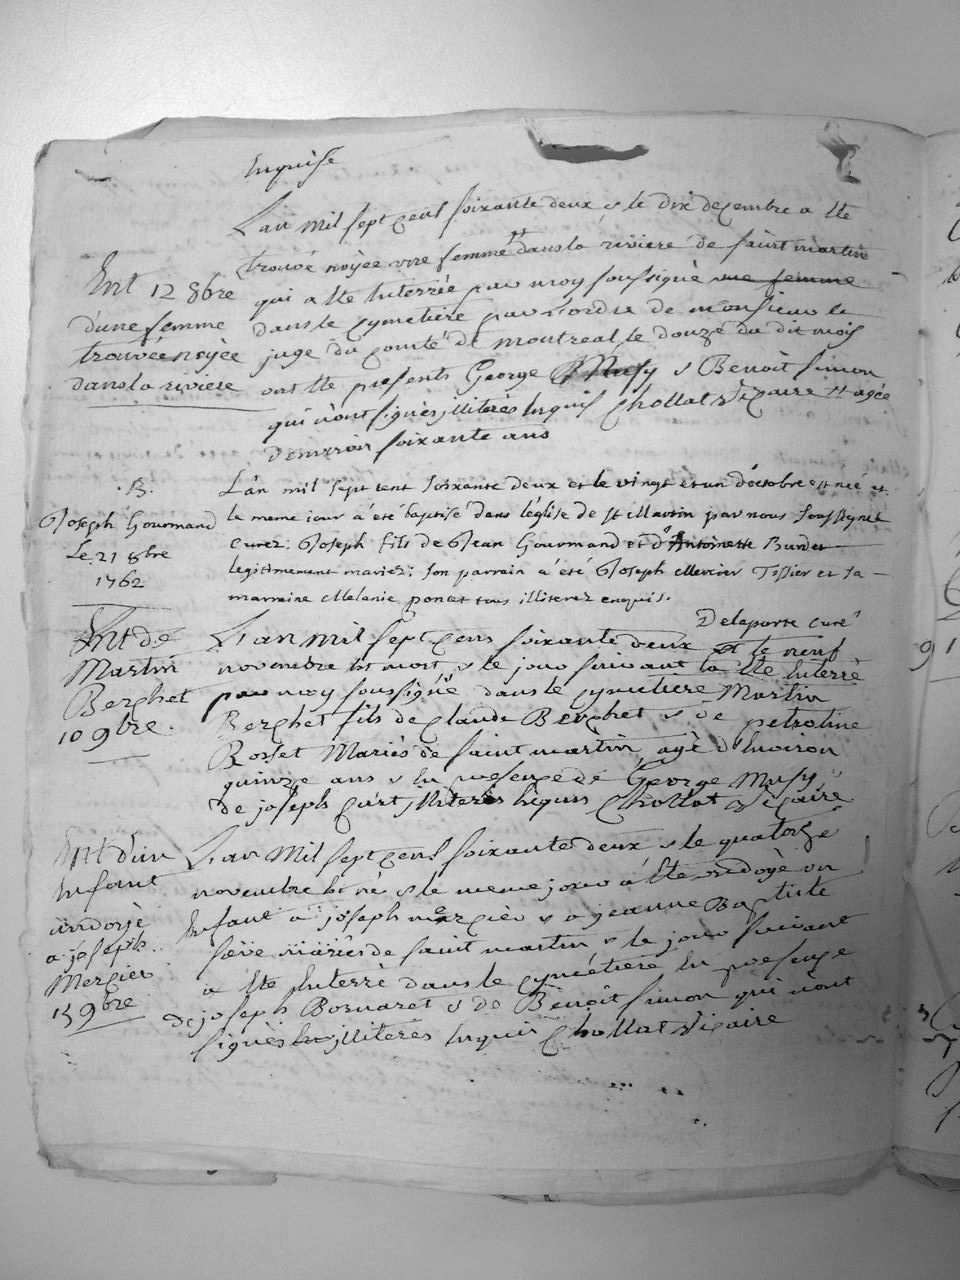 Enquise
L'an mil sept cens soixante deux & le dix decembre a ete
trouvé noyée une femme # dans la riviere de saint martin
Ent 12 8bre
d'une femme
trouvée noyée
dans la riviere
qui a ete enterrée par moy soussigné une femme
dans le cymetiere par l'ordre de monsieur le
juge du comté de montreal le douze du dit mois
ont ete presents George Musy & Benoit simon
qui n'ont signés illiterés enquis Chollat vicaire # agée
d'environ soixante ans
B.
Joseph Gourmand
Le 21 8bre
1762
L'an mil sept cent soixante deux et le vingt et un d'octobre est né et
le meme jour a été baptisé dans l'église de st Martin par nous soussigné
curez. Joseph fils de Jean Gourmand et d'Antoinette Burdet
legitimement mariez; son parrain a été Joseph Mercier Tissier et sa
marraine Melanie poncet tous illiterez enquis.
Delaporte curé
Ent de
Martin
Berchet
10 9bre.
L'an mil sept cens soixante deux et le neuf
novembre est mort & le jour suivant a ete enterré
par moy soussigné dans le cymetiere Martin
Berchet fils de claude Berchet & de petroline
Rosset Mariés de saint martin agé d'environ
quinze ans & en presence de George Musy,
de joseph illiterés enquis Chollat vicaire
Ent d'un
enfant
ondoié
a joseph
Mercier
15 9bre
L'an Mil sept cens soixante deux & le quatorze
novembre est né & le meme jour a été ondoyé un
enfant a joseph mercier & a jeanne Baptiste
seve mariés de saint martin & le jour suivant
a ete enterré dans le cymétiere en presence
de joseph Bornaret & de Benoit simon qui n'ont
signés illiterés enquis Chollat vicaire